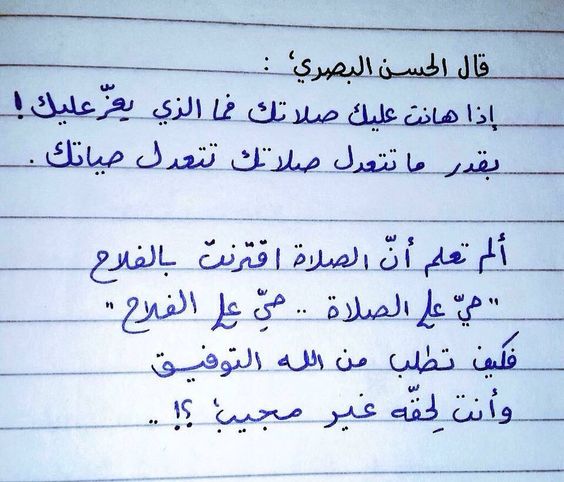 قال الحسن البصري :
إذا هانت عليك صلاتك فما الذي يعزّ عليك !
بقدر ما تتعدل صلاتك تتعدل حياتك .
ألم تعلم أنّ الصلاة اقترنت بالفلاح
"حيّ على الصلاة .. حيّ على الفلاح"
فكيف تطلب من الله التوفيق
وأنت لِحقّه غير مجيب ؟! ..